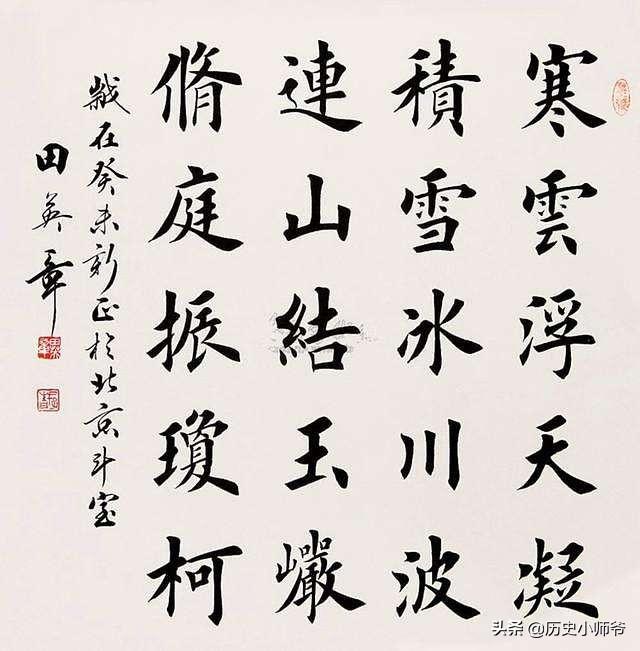 寒雲浮天凝
積雪冰川波
連山結玉巗
脩庭振瓊柯
歲在癸未新正於北京斗室
田英章
头条 @历史小师爷